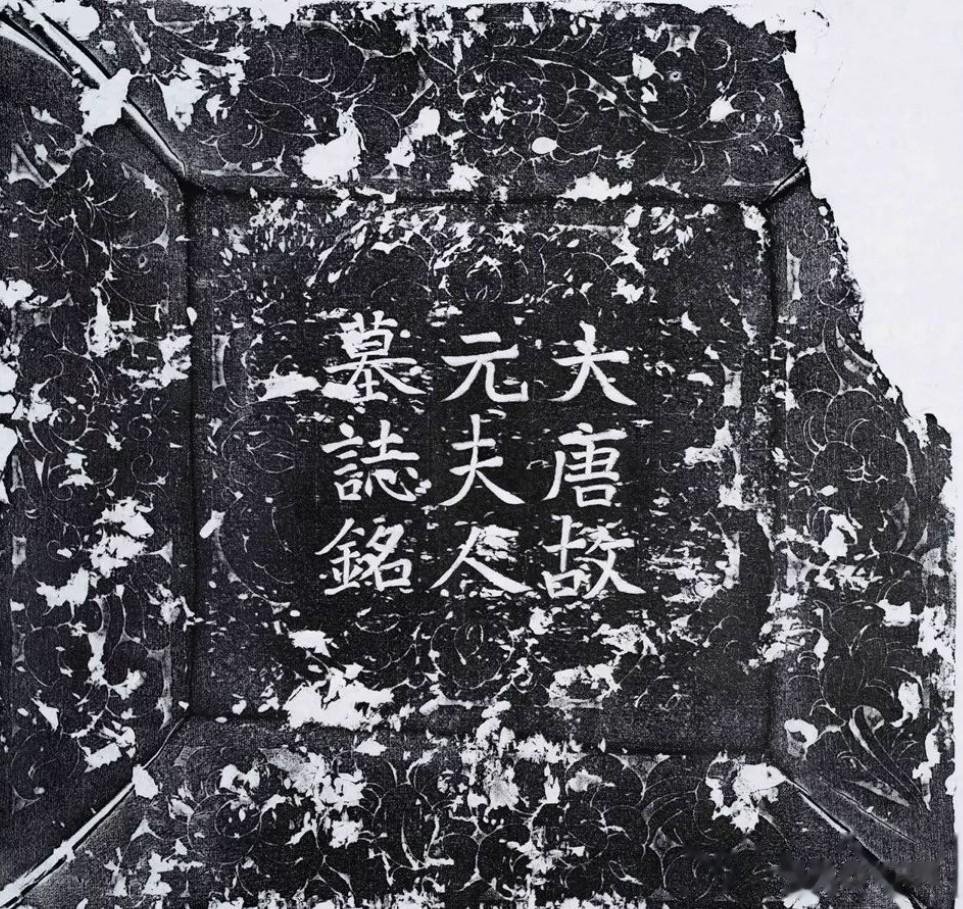 大唐故
元夫人
墓誌銘